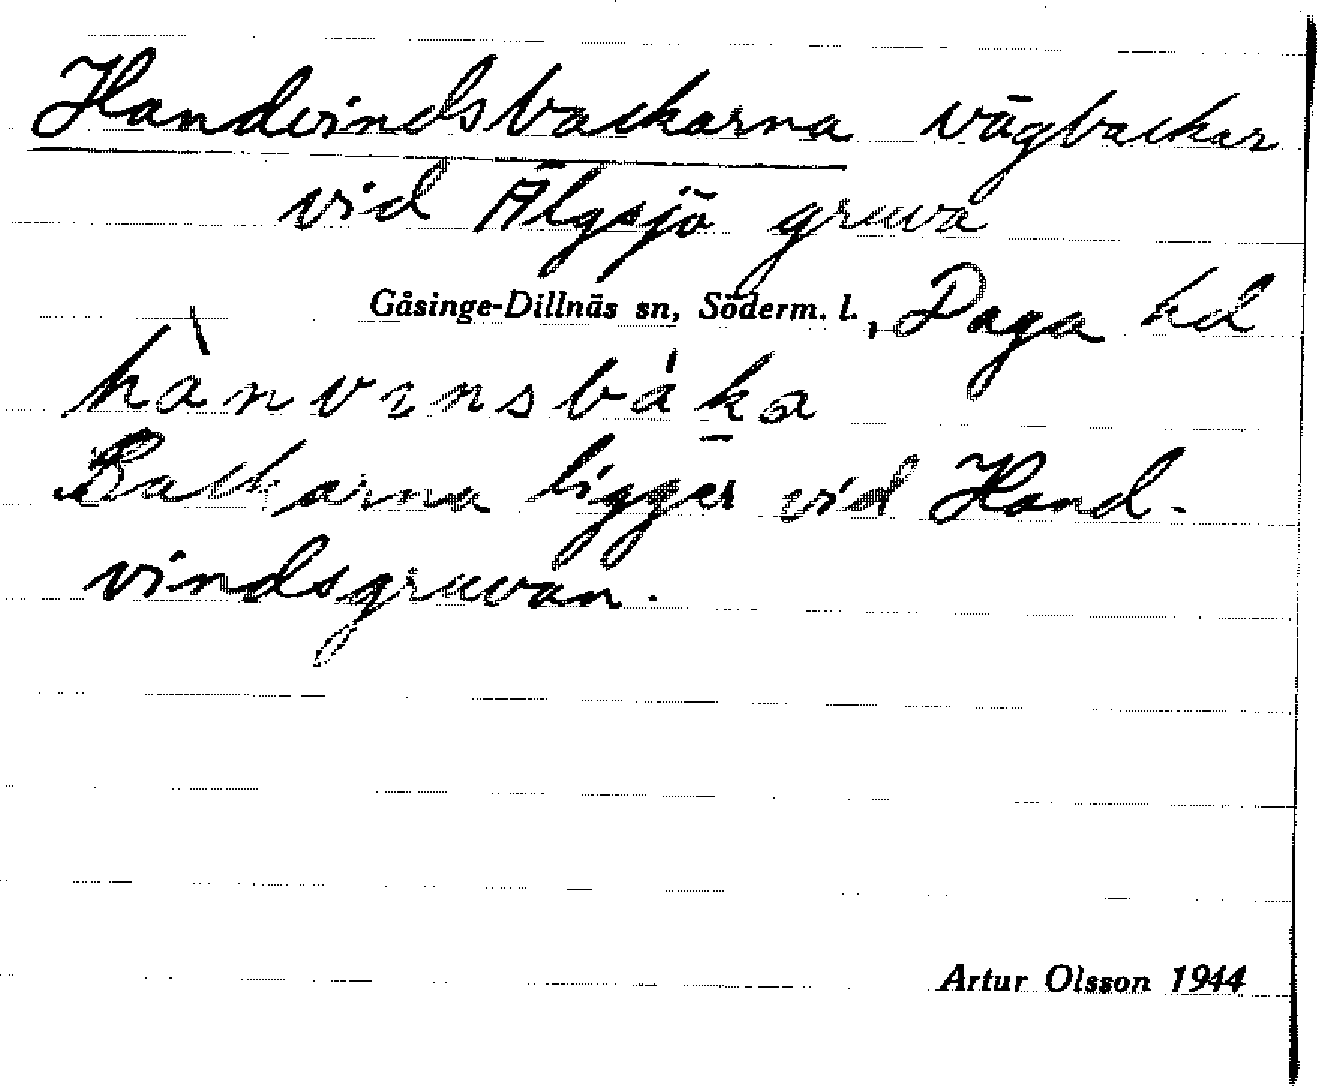 Handvindsbackarna vägbackar
vid Älgsjö gruva
Gåsinge-Dillnäs sn, Söderm. l., Daga hd
hànvinsbáka
Backarna ligger vid Hand-
vindsgruvan.
Artur Olsson 1944